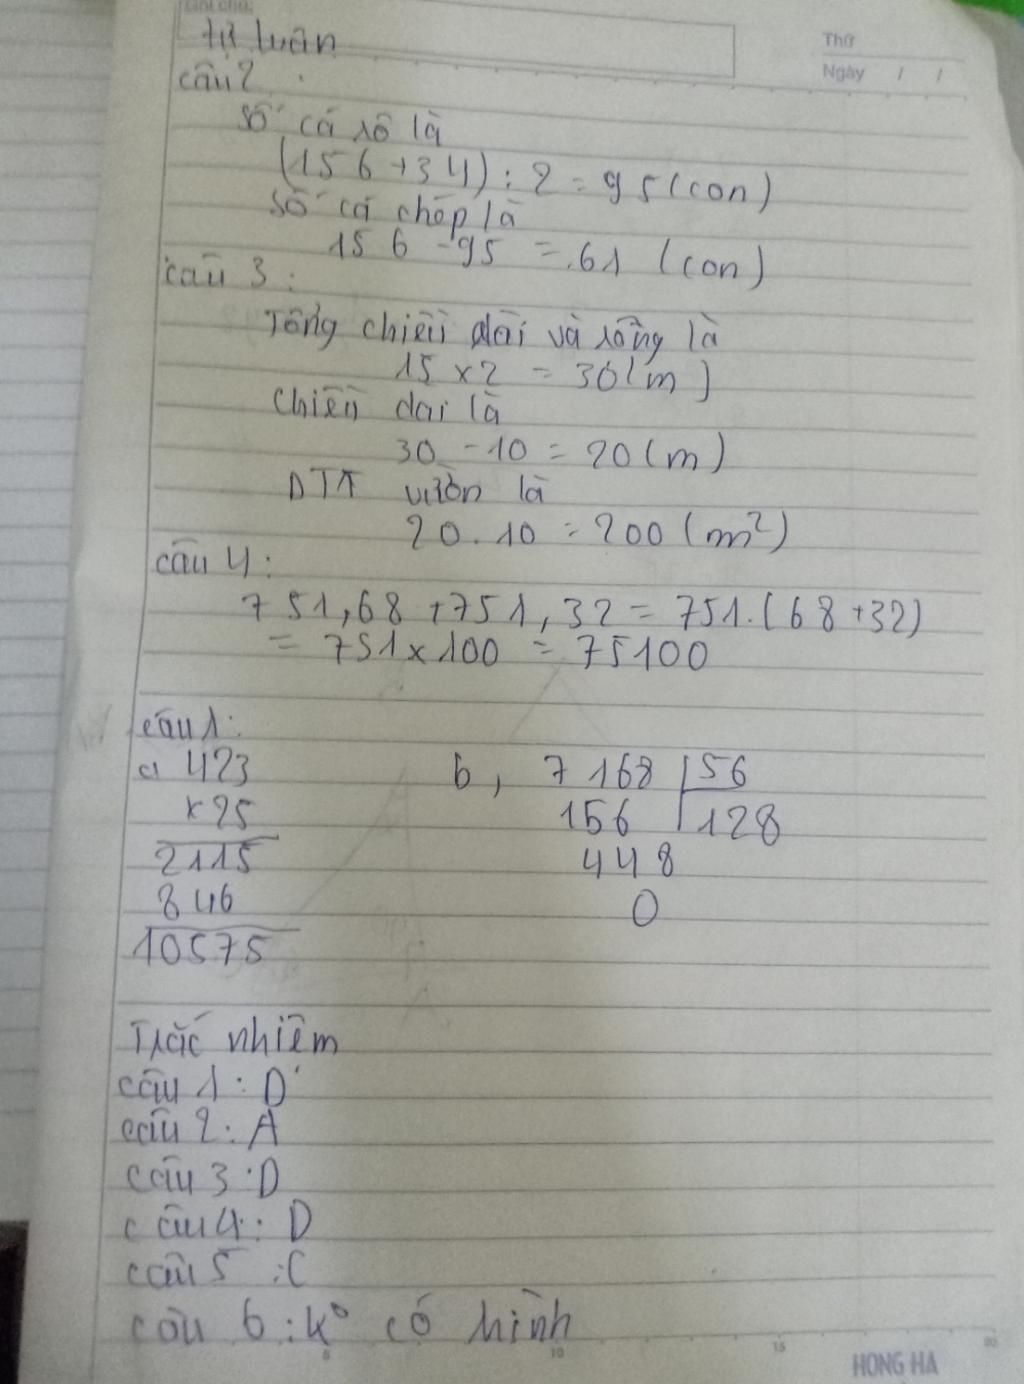 Ghi chú:
Tự luận
Thứ
Ngày / /
câu 2
Số cá rô là
(156+34) : 2 = 95 (con)
Số cá chép là
156 - 95 = 61 (con)
câu 3:
Tổng chiều dài và rộng là
15 x 2 = 30 (m)
Chiều dai là
30 - 10 = 20 (m)
DTK vườn là
20 . 10 = 200 (m²)
câu 4:
751,68 + 751,32 = 751.(68+32)
= 751 x 100 = 75100
câu 1:
a 423 b, 7168 56
x 25 156 128
2115 448
846 0
10575
Trắc nhiêm
câu 1: D
câu 2: A
câu 3: D
câu 4: D
câu 5: C
câu 6: K° có hình
5 10 15 20
HONG HA